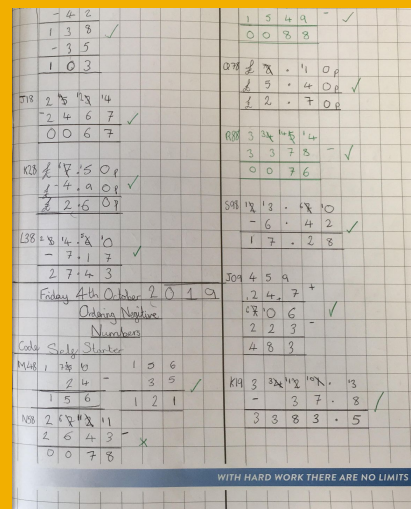 - 4 2
1 3 8
- 3 5
1 0 3
J18 2
- 2 4 6 7
0 0 6 7
K28
£ - 4 . 9 0p
£ 2 . 6 0p
L38
- 7 . 1 7
2 7 . 4 3
Friday 4th October 2019
Ordering Negitive
Numbers
Code Self Starter
M48 1 1 5 6
2 4 - 3 5
1 5 6 1 2 1
N58 2
2 6 4 3 -
0 0 7 8
1 5 4 9 -
0 0 8 8
Q78 £
£ 5 . 4 0p
£ 2 . 7 0p
R88 3
3 3 7 8 -
0 0 7 6
S98
- 6 . 4 2
1 7 . 2 8
J09 4 5 9
2 4 . 7 +
0 6
2 2 3 -
4 8 3
K19 3
- 3 7 . 8
3 3 8 3 . 5
WITH HARD WORK THERE ARE NO LIMITS